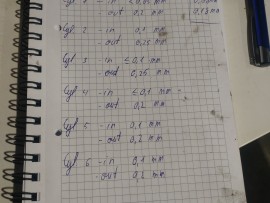 Cyl 1 - in ≤ 0,05 mm
- out 0,2 mm
0,18 mm
Cyl 2 - in 0,1 mm
- out 0,25 mm
Cyl 3 - in ≤ 0,1 mm
- out 0,25 mm
Cyl 4 - in ≤ 0,1 mm -
- out 0,2 mm
Cyl 5 - in 0,1 mm
- out 0,2 mm
Cyl 6 - in 0,1 mm
- out 0,2 mm